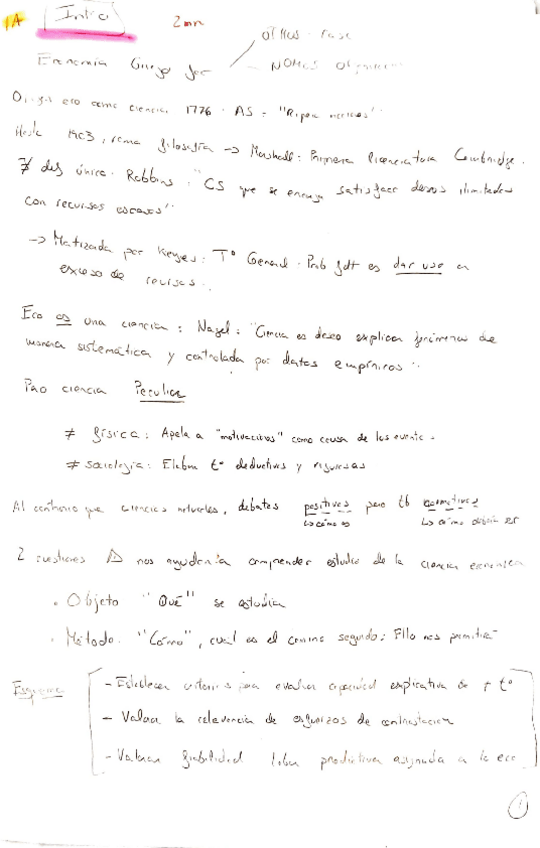 1A Intro 2 min
OIKOS - casa
Economía Griego
NOMOS
Origen eco como ciencia 1776 - AS: "Riqueza naciones"
Hasta 1903, rama filosofía -> Marshall: Primera licenciatura Cambridge.
∄ def única. Robbins: "CS que se encarga satisfacer deseos ilimitados
con recursos escasos"
-> Matizada por Keynes: Tª General. Prob fdt es dar uso a
exceso de recursos.
Eco es una ciencia: Nagel: "Ciencia es deseo explicar fenómenos de
manera sistemática y controlada por datos empíricos".
Pero ciencia Peculiar
≠ física: Apela a "motivaciones" como causa de los eventos.
≠ sociología: Elabora tª deductivas y rigurosas
Al contrario que ciencias naturales, debates positivos pero tb normativos
↳ cómo es ↳ cómo debería ser
2 cuestiones nos ayudarán a comprender estudio de la ciencia económica
• Objeto "Qué" se estudia
• Método: "Cómo", cuál es el camino seguido: Ello nos permitirá
Esquema
- Establecer criterios para evaluar capacidad explicativa de tª
- Valorar la relevancia de esfuerzos de contrastación
- Valorar fiabilidad labor predictiva asignada a la eco
1